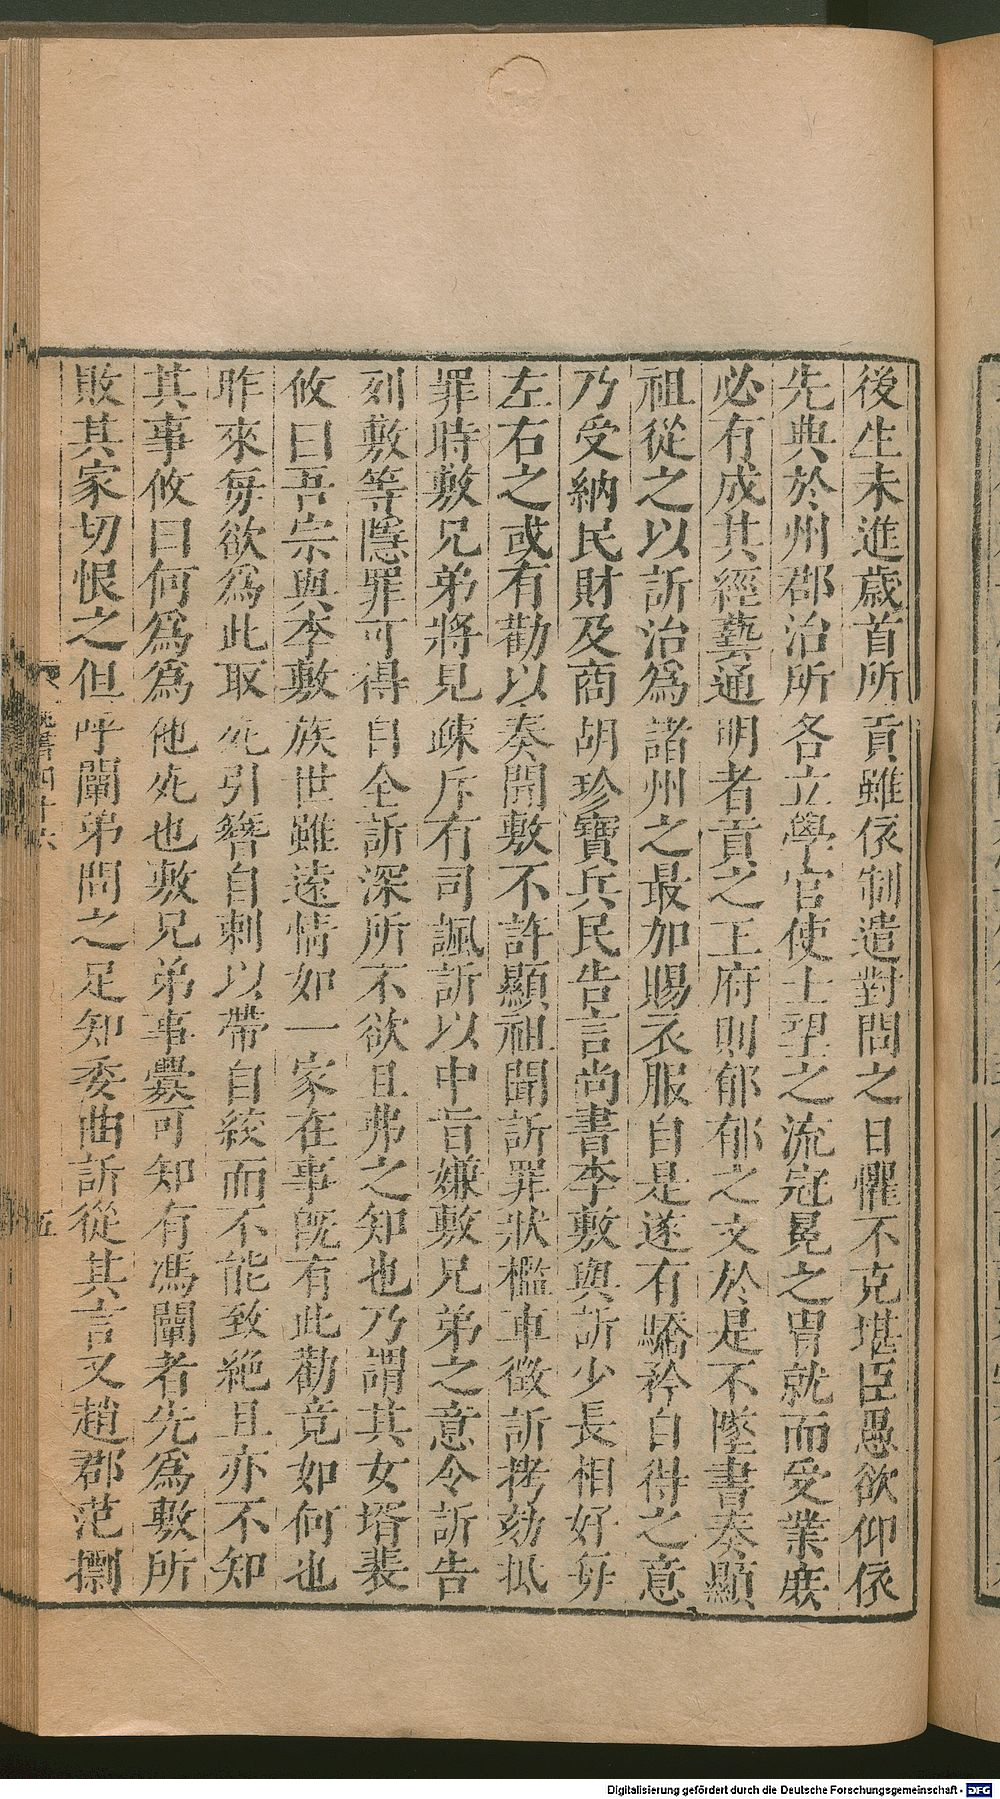 後生未進歲首所貢雖依制遣對問之日懼不克堪臣愚欲仰依
先典於州郡治所各立學官使士望之流冠冕之胄就而受業庶
必有成其經藝通明者貢之王府則郁郁之文於是不墜書奏顯
祖從之以訢治爲諸州之最加賜衣服自是遂有驕矜自得之意
乃受納民財及商胡珍寶兵民告言尚書李敷與訢少長相好每
左右之或有勸以奏聞敷不許顯祖聞訢罪狀檻車徵訢拷劾抵
罪時敷兄弟將見疎斥有司諷訢以中旨嫌敷兄弟之意令訢告
列敷等隱罪可得自全訢深所不欲且弗之知也乃謂其女壻裴
攸曰吾宗與李敷族世雖遠情如一家在事旣有此勸竟如何也
昨來每欲爲此取死引簪自刺以帶自絞而不能致絶且亦不知
其事攸曰何爲爲他死也敷兄弟事釁可知有馮闡者先爲敷所
敗其家切恨之但呼闡弟問之足知委曲訢從其言又趙郡范𢷤
魏書四十六
五
Digitalisierung gefördert durch die Deutsche Forschungsgemeinschaft - DFG